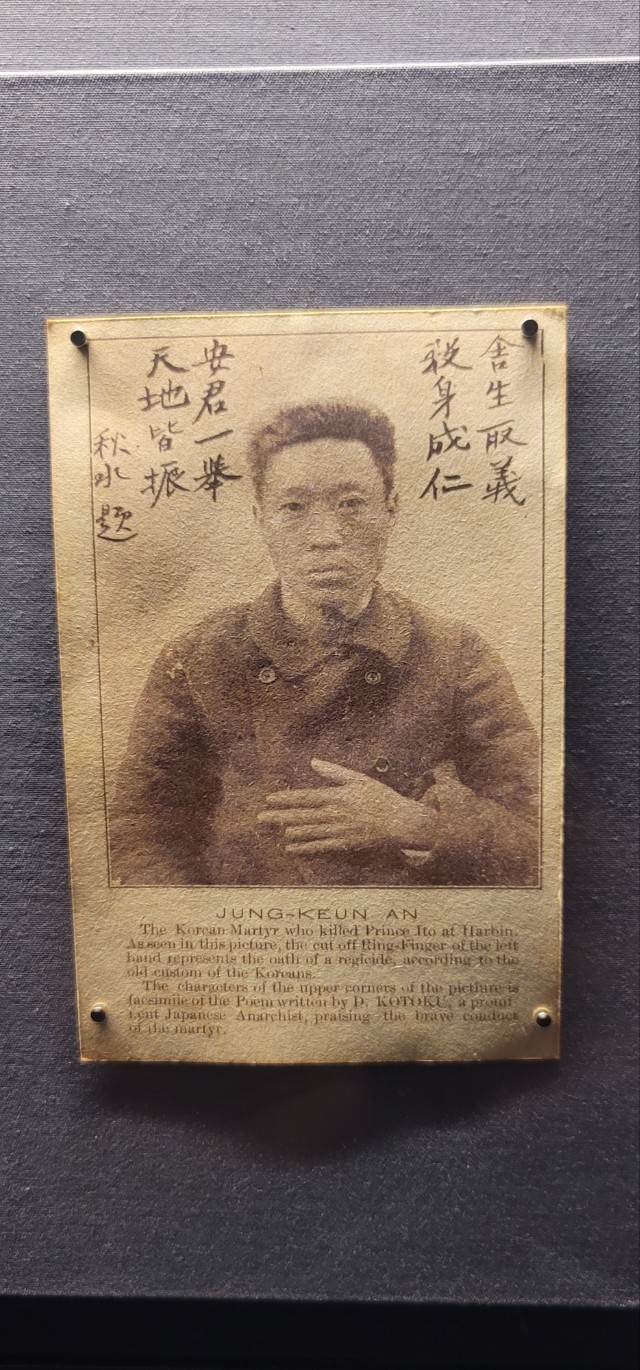 舍生取義
殺身成仁
安君一舉
天地皆振
秋水題
JUNG-KEUN AN
The Korean Martyr who killed Prince Ito at Harbin.
As seen in this picture, the cut off Ring-Finger of the left
hand represents the oath of a regicide, according to the
old custom of the Koreans.
The chargeters of the upper corners of the picture is
facsimile of the Poem written by D. KOTOKU, a promi-
nent Japanese Anarchist, praising the brave conduct
of the martyr.